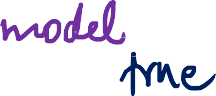 model
true